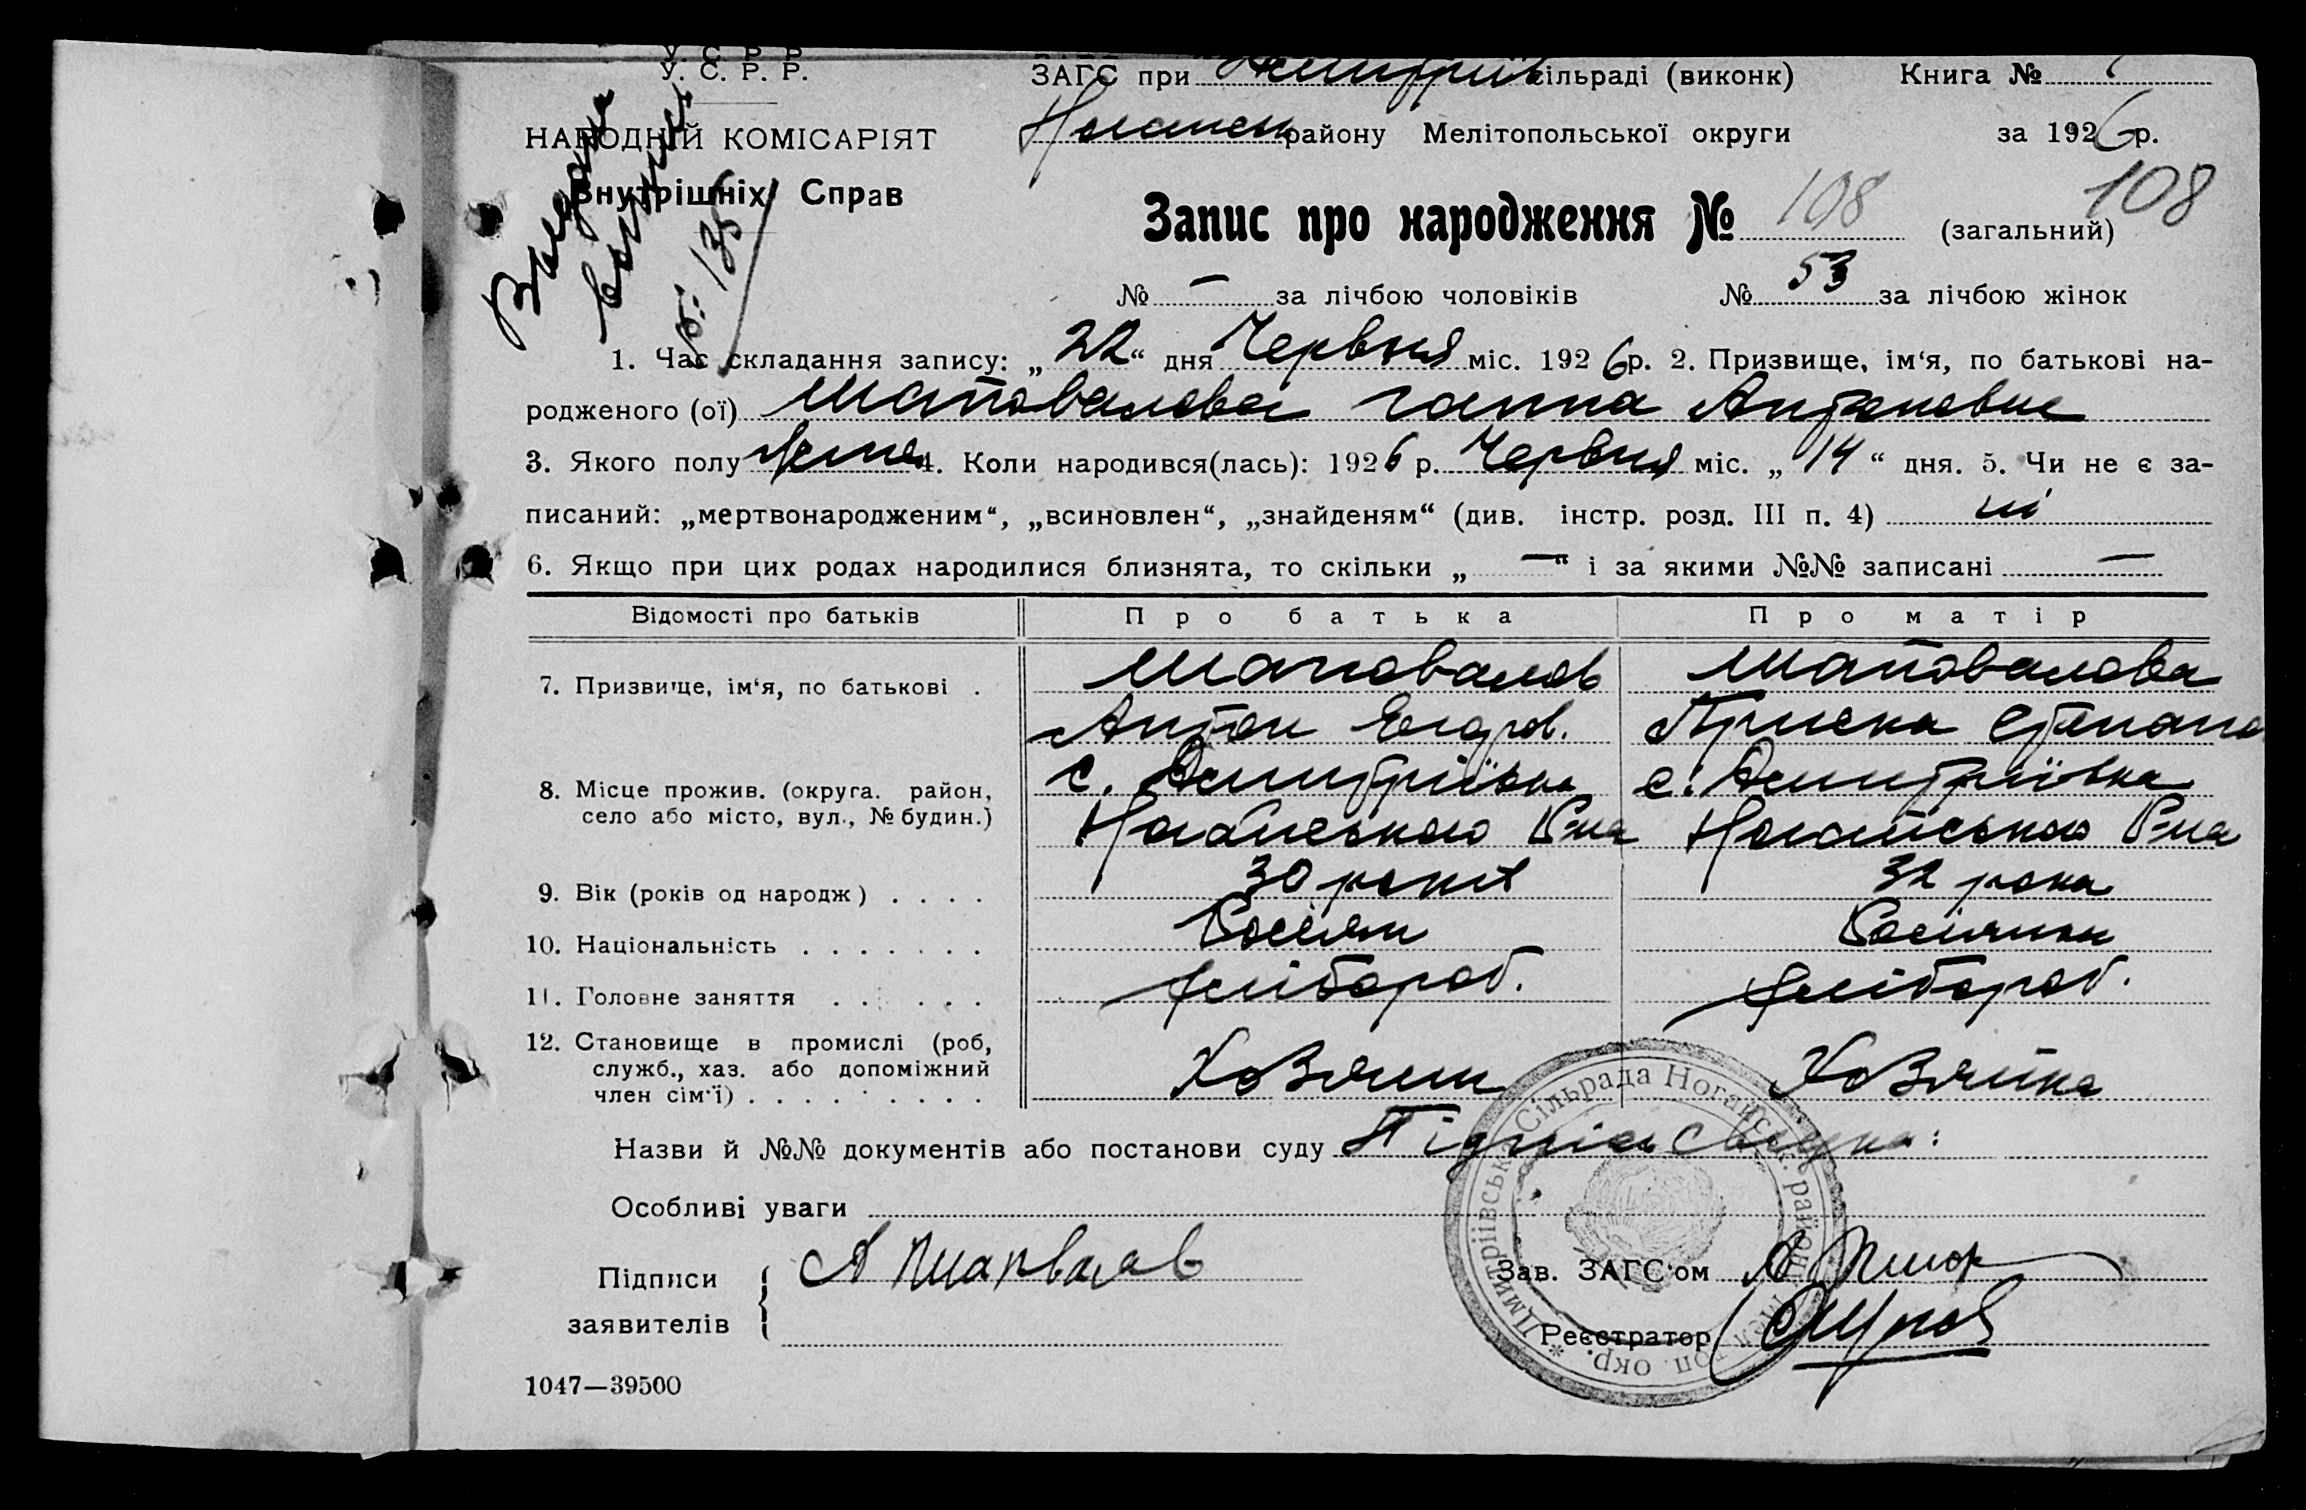 У. С. Р. Р.
У. С. Р. Р.
НАРОДНІЙ КОМІСАРІЯТ
Внутрішніх Справ
ЗАГС при Дмитріїв сільраді (виконк) Книга №
Ногайськ району Мелітопольської округи за 1926 р.
Запис про народження № 108 (загальний) 108
№ — за лічбою чоловіків № 53 за лічбою жінок
1. Час складання запису: „22“ дня Червня міс. 1926 р. 2. Призвище, ім‘я, по батькові на-
родженого (ої) Шаповалова Ганна Антоновна
3. Якого полу жіноч 4. Коли народився(лась): 1926 р. Червня міс. „14“ дня. 5. Чи не є за-
писаний: „мертвонародженим“, „всиновлен“, „знайденям“ (див. інстр. розд. III п. 4) ні
6. Якщо при цих родах народилися близнята, то скільки „—“ і за якими №№ записані —
Відомості про батьків Про батька Про матір
7. Призвище, ім‘я, по батькові . Шаповалов Шаповалова
Антон Егоров. Приска Степано
8. Місце прожив. (округа. район, село або місто, вул., № будин.) с. Дмитріївка с. Дмитріївка
Ногайського Р-на Ногайського Р-на
9. Вік (років од народж) . . . . 30 років 32 рока
10. Національність . . . . . . . Росіян Росіянка
11. Головне заняття . . . . . . хлібороб. хлібороб.
12. Становище в промислі (роб, служб., хаз. або допоміжний член сім‘ї) . . . . . . . . . Хозяин Хозяйка
Назви й №№ документів або постанови суду
Особливі уваги
Підписи заявителів А Шапвалов
Зав. ЗАГС‘ом
Реєстратор
Дмитріївськ Сільрада Ногайськ. району Меліто п. окр. *
1047—39500